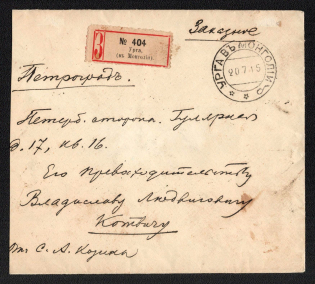 Заказное
З
№ 404
Урга,
(въ Монголіи).
УРГА ВЪ МОНГОЛІИ
20.7.15
Петроградъ.
Петерб. сторона. Гулярная
д. 17, кв. 16.
Его Превосходительству
Владиславу Людвиговичу
Котвичу
отъ С. А. Козина